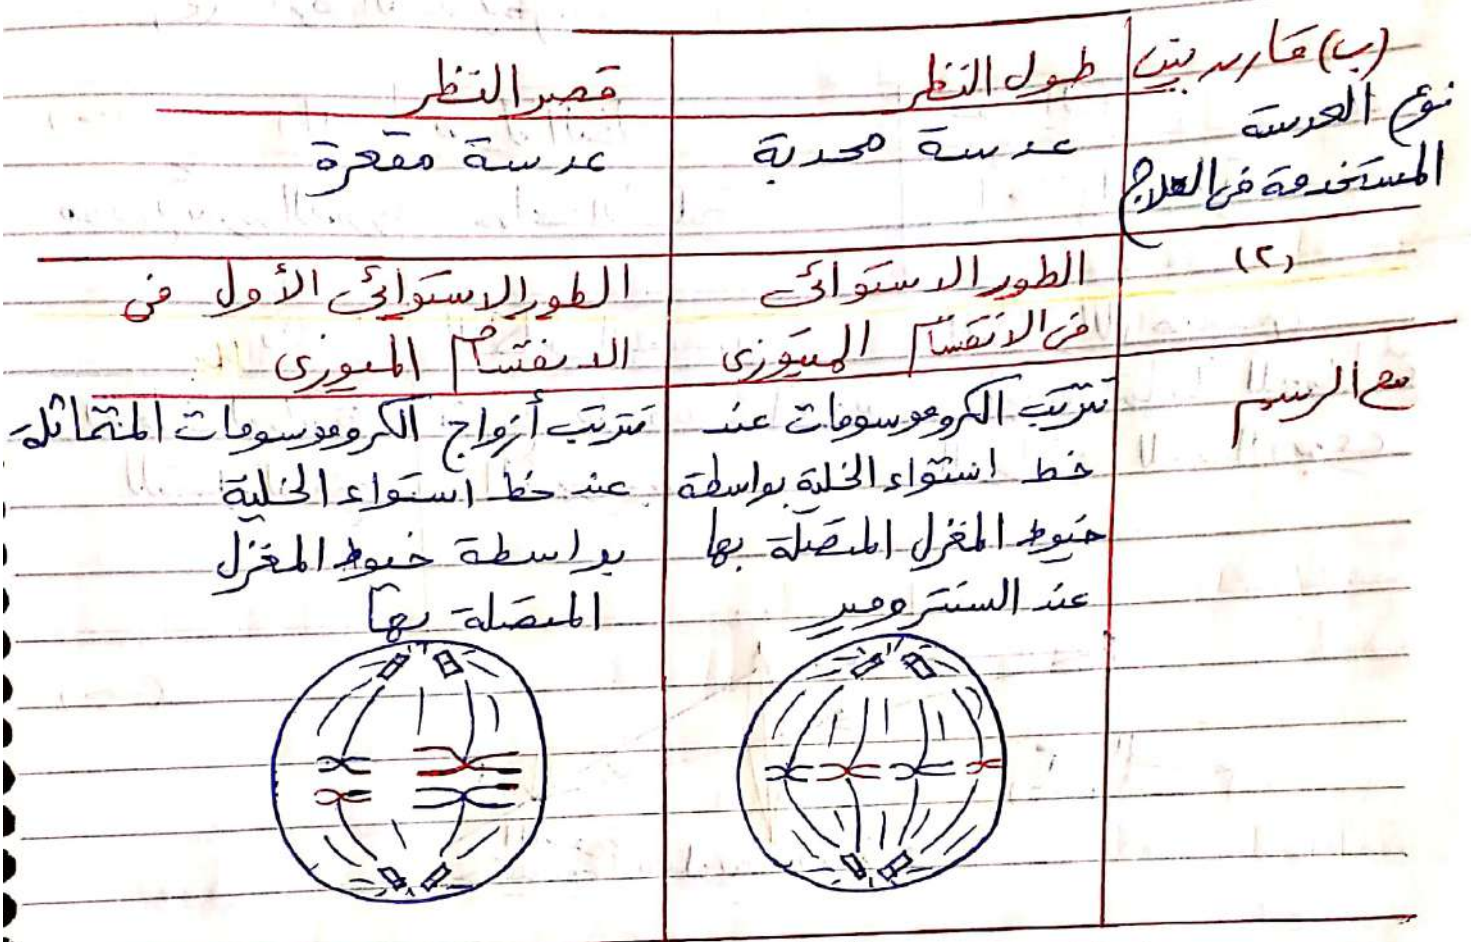 (ب) قارن بين
طول النظر
قصر النظر
نوع العدسة
المستخدمة في العلاج
عدسة محدبة
عدسة مقعرة
(٢)
الطور الاستوائي
في الانقسام الميتوزى
الطور الاستوائي الأول في
الانقسام الميوزى
مع الرسم
تترتب الكروموسومات عند
خط استواء الخلية بواسطة
خيوط المغزل المتصلة بها
عند السنترومير
تترتب أزواج الكروموسومات المتماثلة
عند خط استواء الخلية
بواسطة خيوط المغزل
المتصلة بها